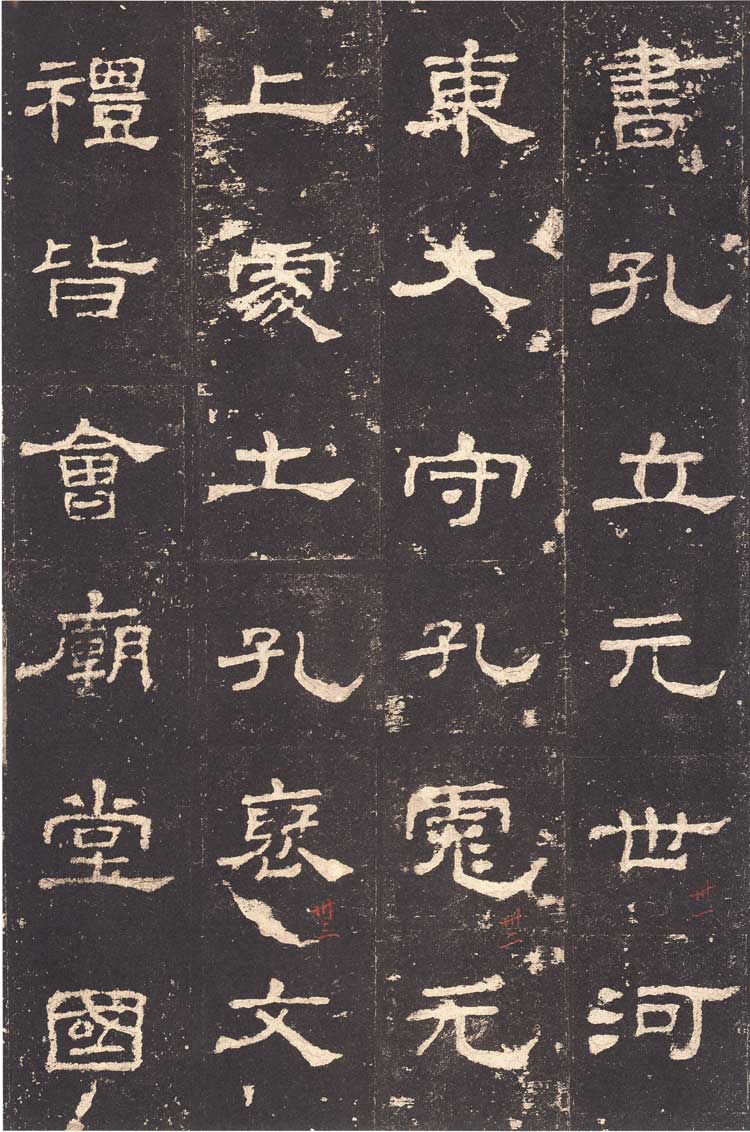 書孔立元世河
卅一
東大守孔彪元
卅二
上處士孔褒文
卅三
禮皆會廟堂國